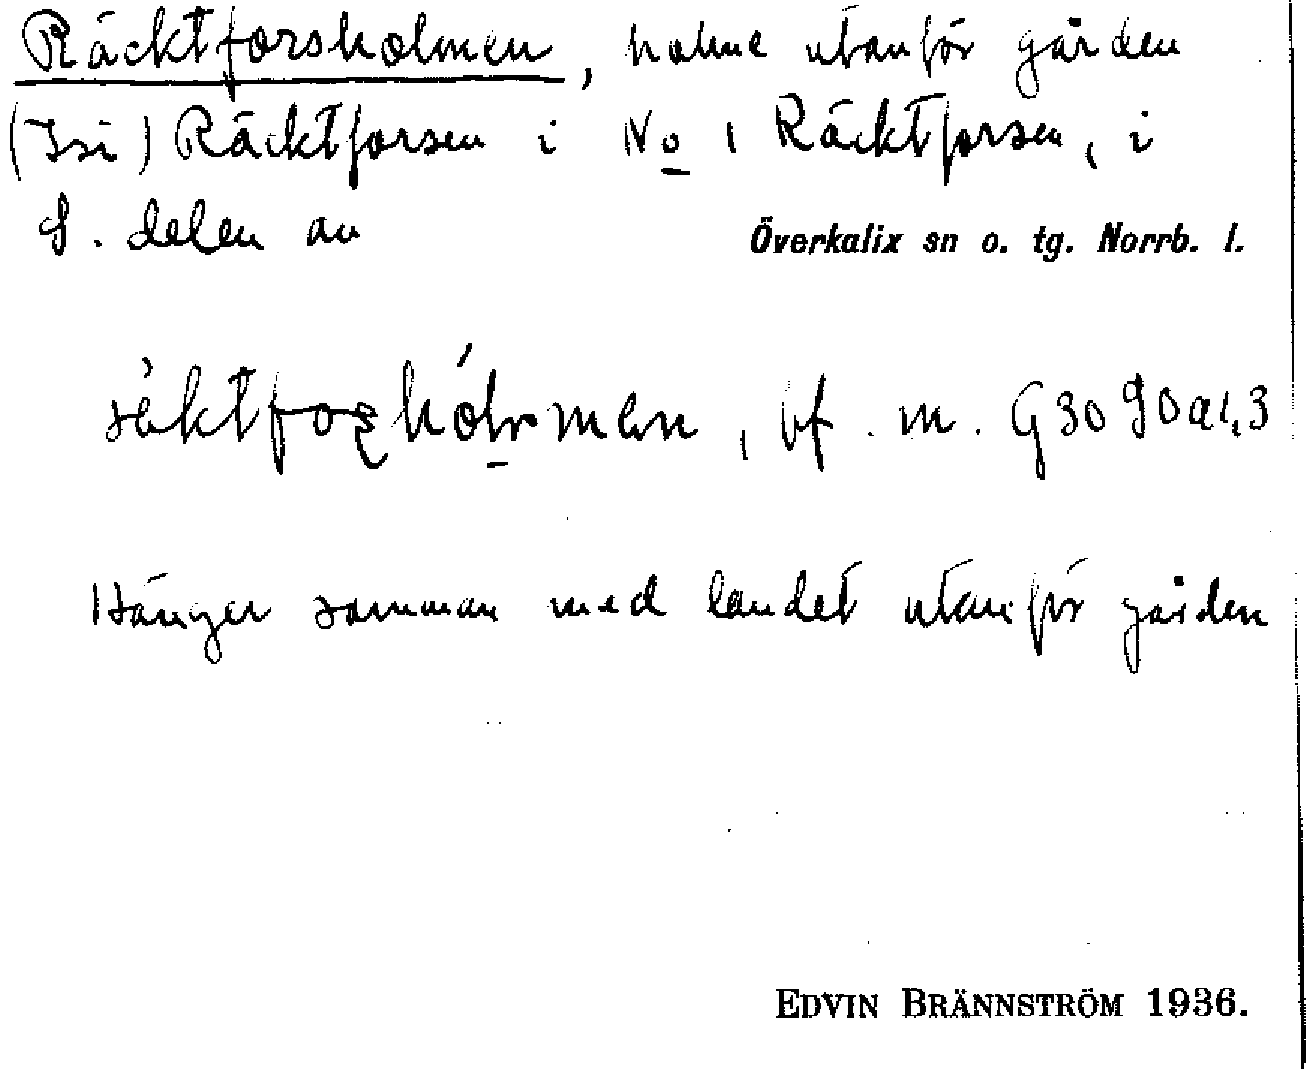 Räcktforsholmen, holme utanför gården
(Isi) Räcktforsen i No 1 Räcktforsen, i
S. delen av Överkalix sn o. tg. Norrb. l.
bf. m. G 30 90 a 1,3
Hänger samman med landet utanför gården
EDVIN BRÄNNSTRÖM 1936.